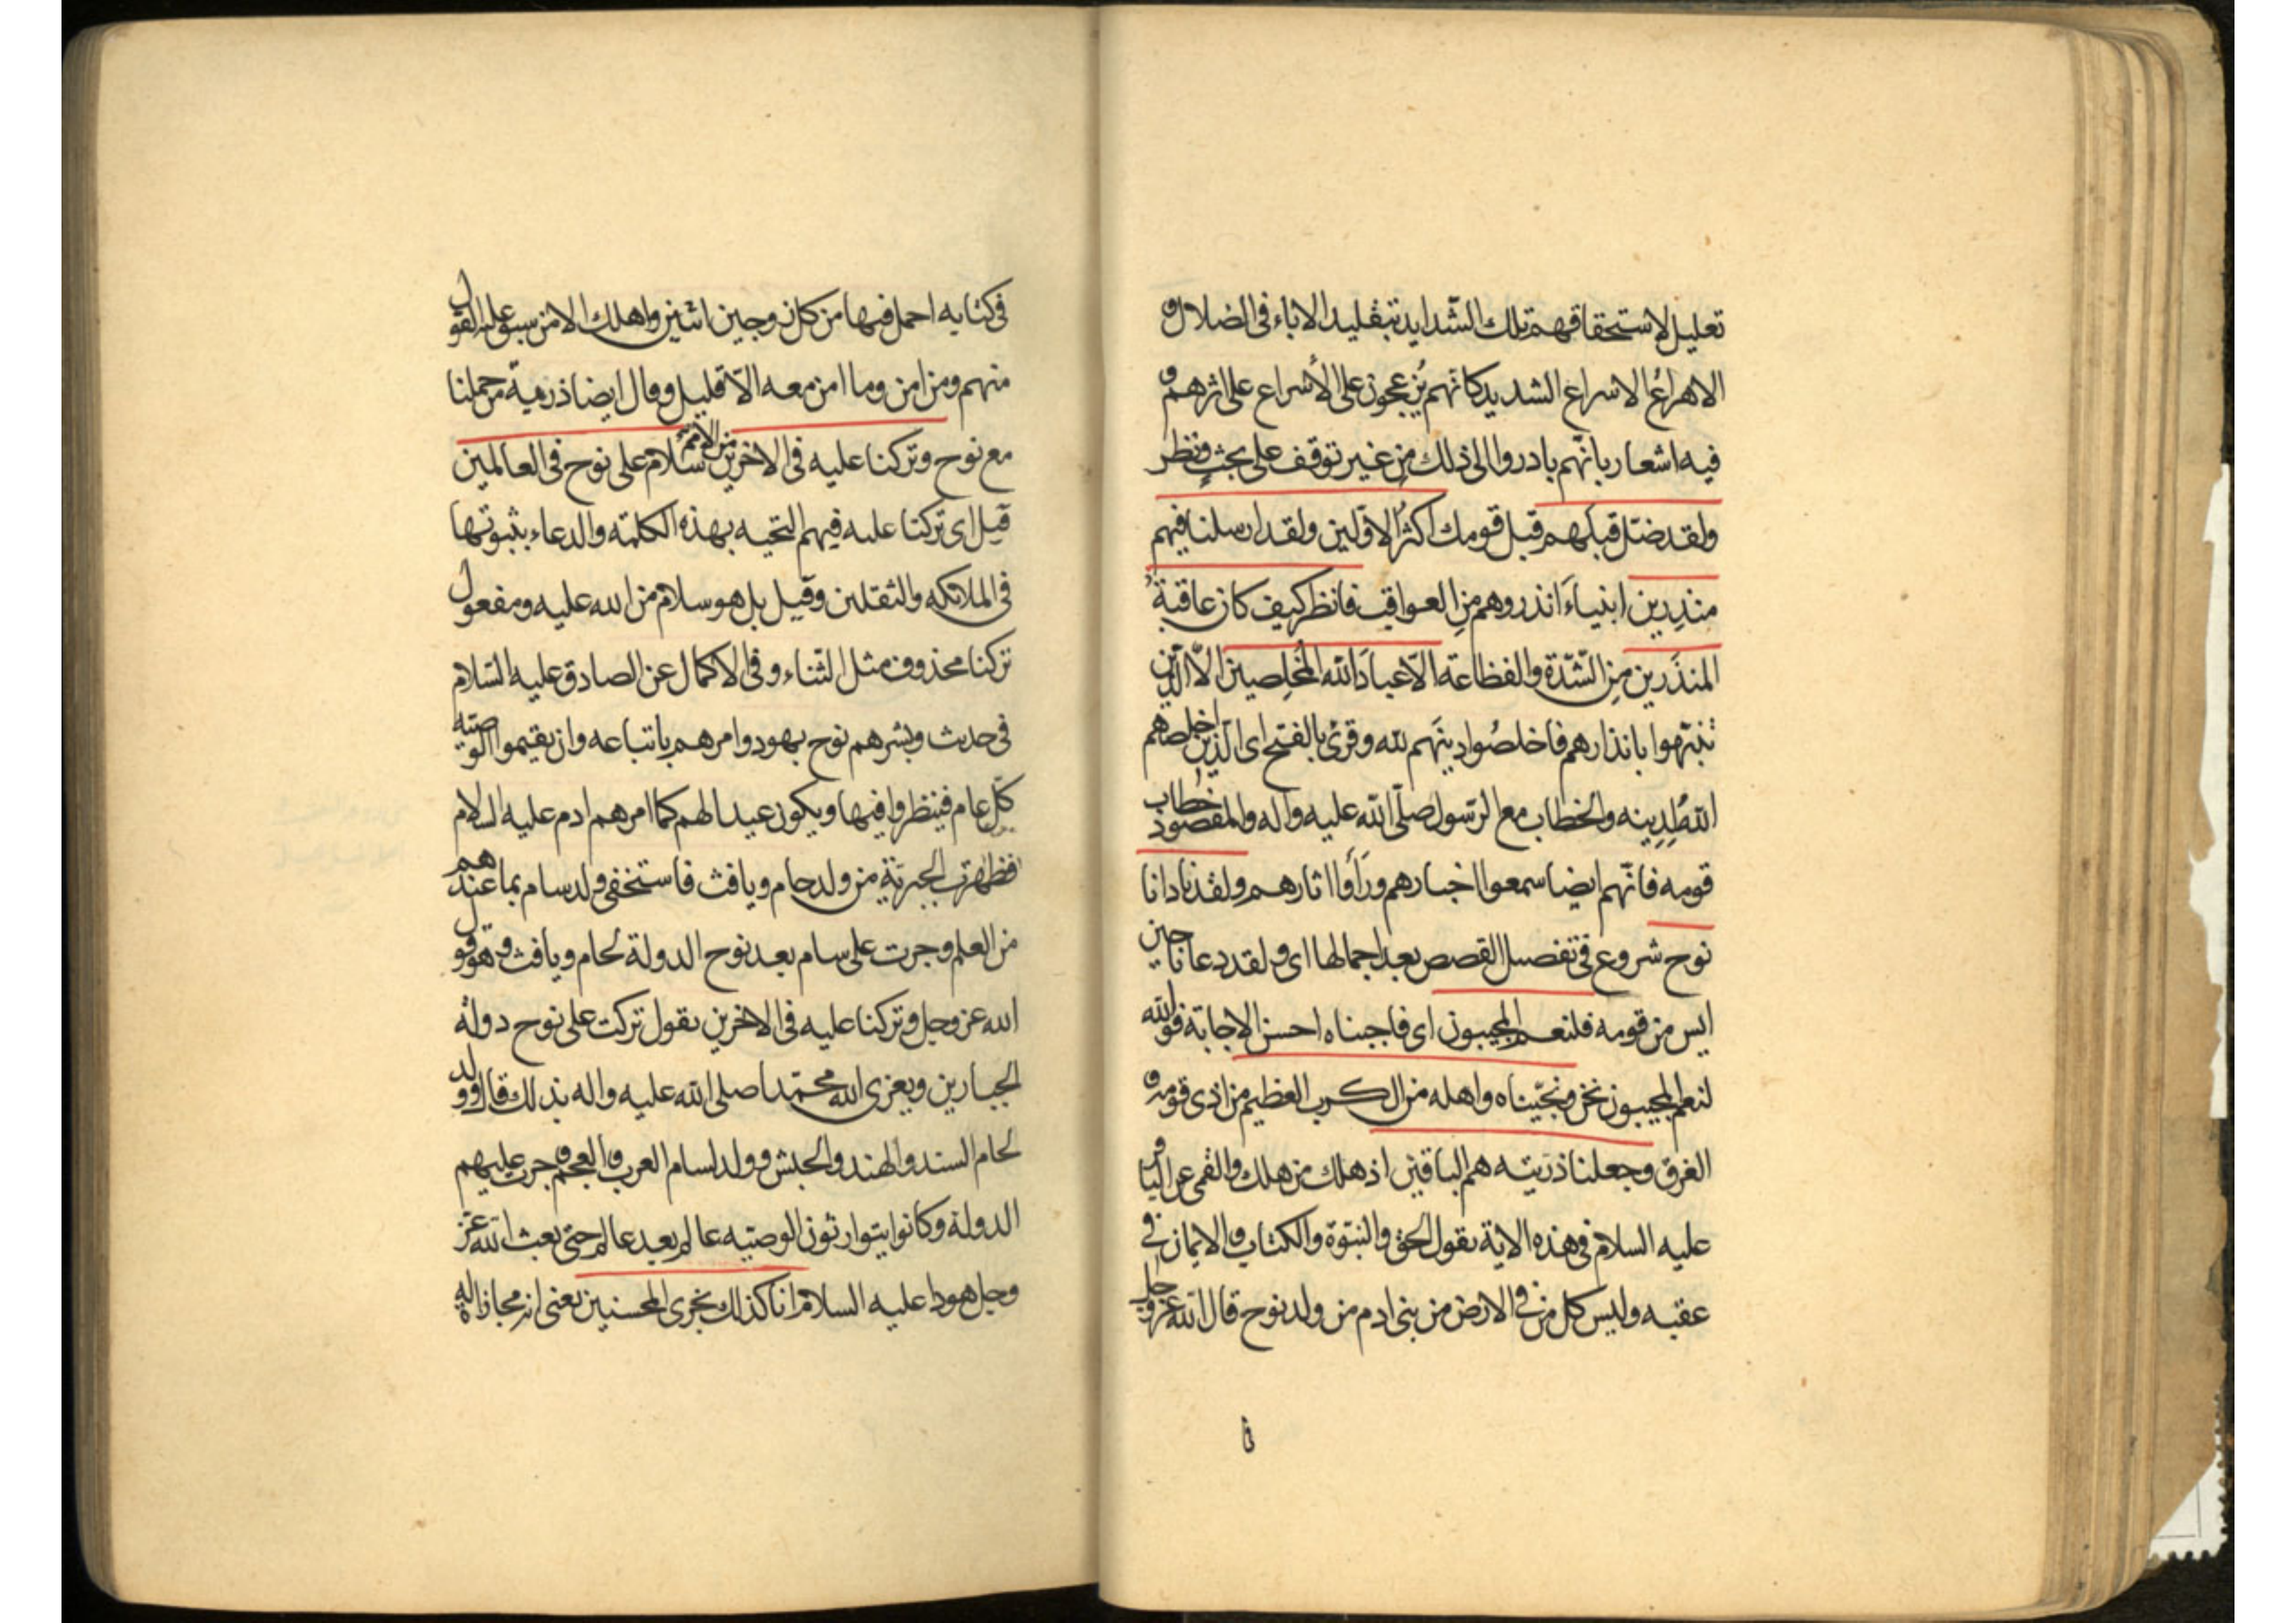 تعليل لاستحقاقهم تلك الشدايد بتقليد الاباء فى الضلال و
الاهراع الاسراع الشديد كانّهم يُزعجون على الأسراع على اثرهم و
فيه اشعار بانّهم بادروا الى ذلك من غير توقف على بحثٍ ونظر
ولقد ضلّ قبلهم قبل قومك اكثرُ الاوّلين ولقد ارسلنا فيهم
منذِرين انبياءَ انذروهم منِ العواقب فانظر كيف كان عاقبةُ
المنذَرين مِن الشّدّة والفظاعة الّا عبادَ الله المخلِصين الّا الّذين
تنبّهوا بانذارهم فاخلصُوا دينَهم لله وقرئ بالفتح اى الّذين اخلصهم
الله لِدِينه والخطاب مع الرّسول صلّى الله عليه واله والمقصود خطاب
قومه فانّهم ايضا سمعوا اخبارهم ورَأَوا اثارهم ولقد نادانا
نوح شروع فى تفصيل القصص بعد اجمالها اى ولقد دعانا حين
ايس من قومه فلنعم المجيبون اى فاجبناه احسن الاجابة فوالله
لنعم المجيبون نحن ونجّيناه واهله من الكرب العظيم من اذى قومه و
الغرق وجعلنا ذرّيته هم الباقين اذ هلك من هلك والقمى عن الباقر
عليه السلام فى هذه الاية يقول الحق والنبّوة والكتاب والايمان فى
عقبه وليس كل من فى الارض من بنى ادم من ولد نوح قال الله عزّ وجل
فى كتابه احمل فيها من كل زوجين اثنين واهلك الا من سبق عليه القول
منهم ومن امن وما امن معه الّا قليل وقال ايضا ذرّيةَ من حملنا
مع نوح وتركنا عليه فى الاخرين من الامم سلام على نوح فى العالمين
قيل اى تركنا عليه فيهم التحيه بهذه الكلمة والدعاء بثبوتها
فى الملائكه والثقلين وقيل بل هو سلام من الله عليه ومفعول
تركنا محذوف مثل الثناء وفى الاكمال عن الصادق عليه السّلام
فى حديث وبشرهم نوح بهود وامرهم باتباعه وان يقيموا الوصيّه
كلّ عام فينظروا فيها ويكون عيدا لهم كما امرهم ادم عليه السلام
فظهرت الجبريّة من ولد حام ويافث فاستخفى ولد سام بما عندهم
من العلم وجرت على سام بعد نوح الدولة لحام ويافث وهو قول
الله عز وجل وتركنا عليه فى الاخرين يقول تركت على نوح دولة
الجبارين ويعزى الله محمّدا صلى الله عليه واله بذلك قال وولد
لحام السند والهند والحبش وولد لسام العرب والعجم وجرت عليهم
الدولة وكانوا يتوارثون الوصيّه عالم بعد عالم حتى بعث الله عزّ
وجل هودا عليه السلام انا كذلك نجزى المحسنين يعنى انه مجازاة له
فى